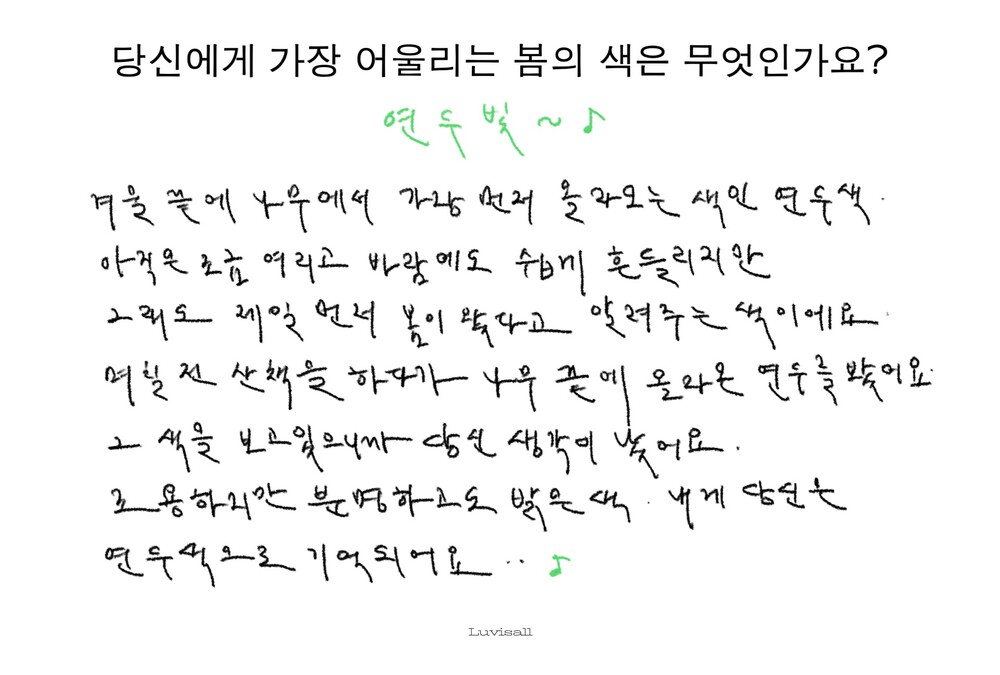 당신에게 가장 어울리는 봄의 색은 무엇인가요?
연두빛~♪
겨울 끝에 나무에서 가장 먼저 올라오는 색인 연두색.
아직은 조금 여리고 바람에도 쉽게 흔들리지만
그래도 제일 먼저 봄이 왔다고 알려주는 색이에요.
며칠 전 산책을 하다가 나무 끝에 올라온 연두를 봤어요.
그 색을 보고있으니까 당신 생각이 났어요.
조용하지만 분명하고도 밝은 색. 내게 당신은
연두색으로 기억되어요..♪
Luvisall